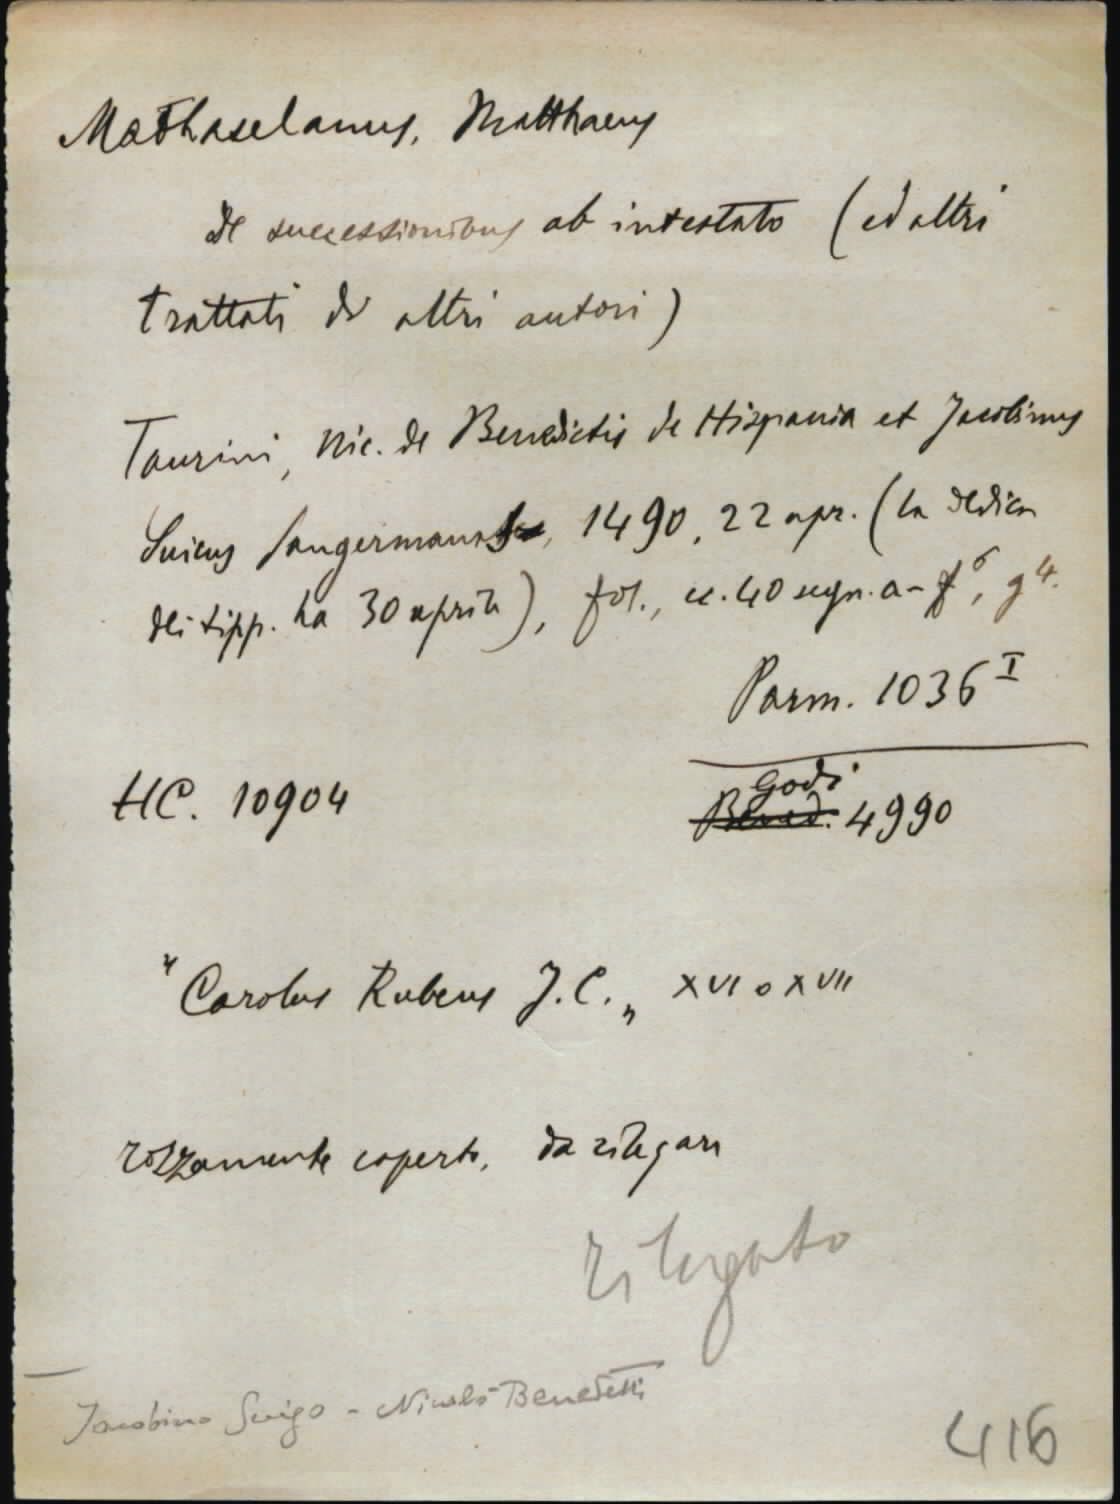 Mathaselanus, Matthaeus
de successionibus ab intestato (ed altri
trattati di altri autori)
Taurini, Nic. de Benedictis de Hispania et Jacobinus
Suicus Sangermanas, 1490, 22 apr. (la dedica
dei tipp. ha 30 aprile), fol., cc. 40 segn. a-f⁶, g⁴.
Parm. 1036 I
HC. 10904
Godi
Bened. 4990
"Carolus Rubeus J.C.„ XVI o XVII
rozzamente coperto, da rilegare
rilegato
Jacobino Suigo - Nicolò Benedetti
416